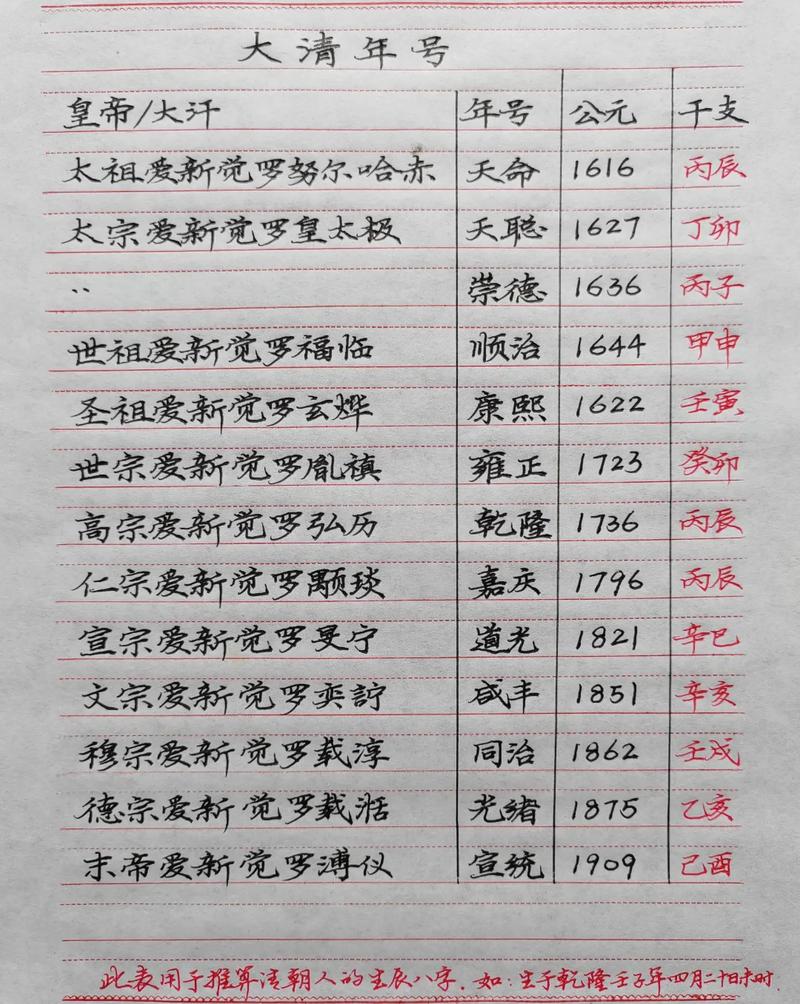 大清年号
皇帝/大汗 年号 公元 干支
太祖爱新觉罗努尔哈赤 天命 1616 丙辰
太宗爱新觉罗皇太极 天聪 1627 丁卯
·· 崇德 1636 丙子
世祖爱新觉罗福临 顺治 1644 甲申
圣祖爱新觉罗玄烨 康熙 1622 壬寅
世宗爱新觉罗胤禛 雍正 1723 癸卯
高宗爱新觉罗弘历 乾隆 1736 丙辰
仁宗爱新觉罗颙琰 嘉庆 1796 丙辰
宣宗爱新觉罗旻宁 道光 1821 辛巳
文宗爱新觉罗奕詝 咸丰 1851 辛亥
穆宗爱新觉罗载淳 同治 1862 壬戌
德宗爱新觉罗载湉 光绪 1875 乙亥
末帝爱新觉罗溥仪 宣统 1909 己酉
此表用于推算清朝人的生辰八字. 如:生于乾隆壬子年四月二十日未时.